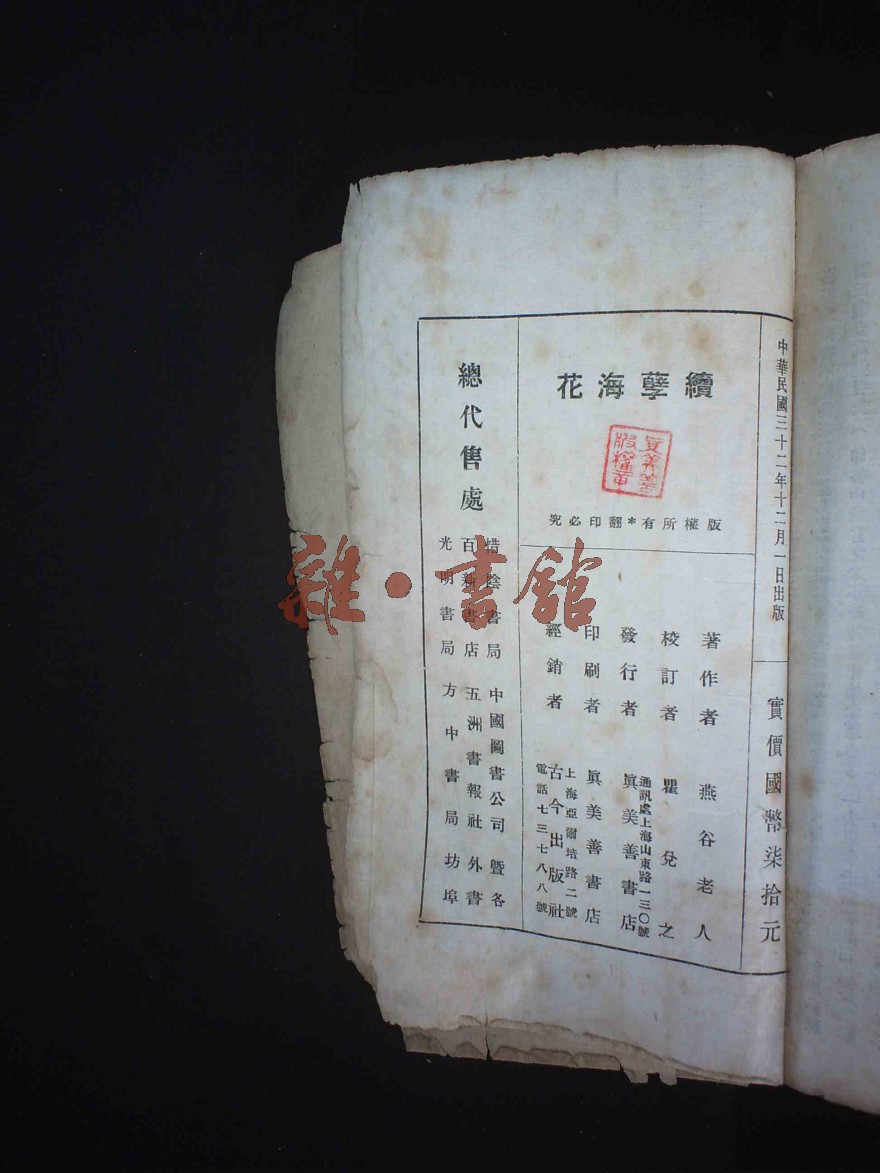 中華民國三十二年十二月一日出版
實價國幣柒拾元
續孽海花
版權所有*翻印必究
著作者 燕谷老人
校訂者 瞿兌之
發行者 眞美善書店
通訊處上海山東路一三〇號
印刷者 眞美善書店
經銷者 古今出版社
上海亞爾培路二號
電話七三七八八號
總代售處
惜陰書局 中國圖書公司暨各
百新書店 五洲書報社外書
光明書局 方中書局坊埠
雜·書館